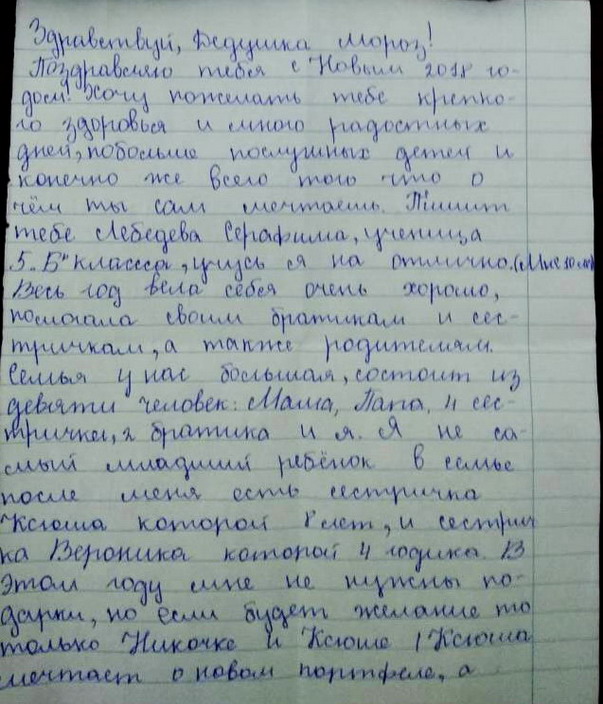 Здравствуй, Дедушка Мороз!
Поздравляю тебя с Новым 2018 го-
дом! Хочу пожелать тебе крепко-
го здоровья и много радостных
дней, побольше послушных детей и
конечно же всего того что о
чём ты сам мечтаешь. Пишит
тебе Лебедева Серафима, ученица
5„Б" класса, учусь я на отлично. (Мне 10 лет)
Весь год вела себя очень хорошо,
помогала своим братикам и сес-
тричкам, а также родителям.
Семья у нас большая, состоит из
девяти человек: Мама, Папа, 4 сес-
трички, 2 братика и я. Я не са-
мый младший ребёнок в семье
после меня есть сестричка
Ксюша которой 8 лет, и сестрич
ка Вероника которой 4 годика. В
этом году мне не нужны по-
дарки, но если будет желание то
только Никочке и Ксюше (Ксюша
мечтает о новом портфеле, а